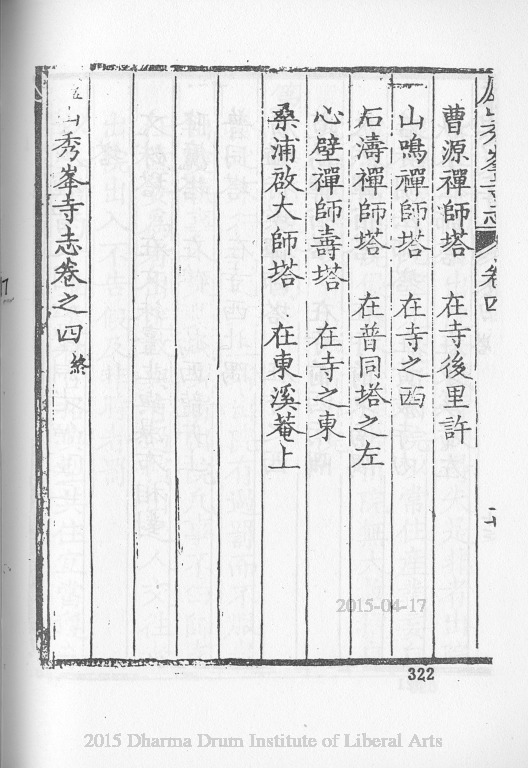 山秀峯寺志 卷四
曹源禪師塔 在寺後里許
山鳴禪師塔 在寺之西
石濤禪師塔 在普同塔之左
心壁禪師壽塔 在寺之東
桑浦啟大師塔 在東溪菴上
山秀峯寺志卷之四終
2015-04-17
322
2015 Dharma Drum Institute of Liberal Arts